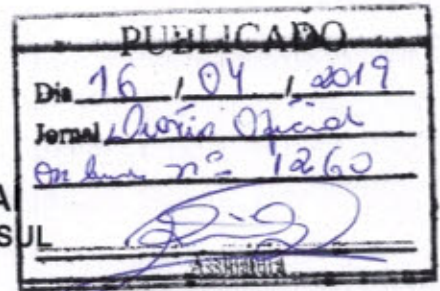 PUBLICADO
Dia 16 / 04 / 2019
Jornal Diário Oficial
on line nº 1260
AI
SUL
Assinatura